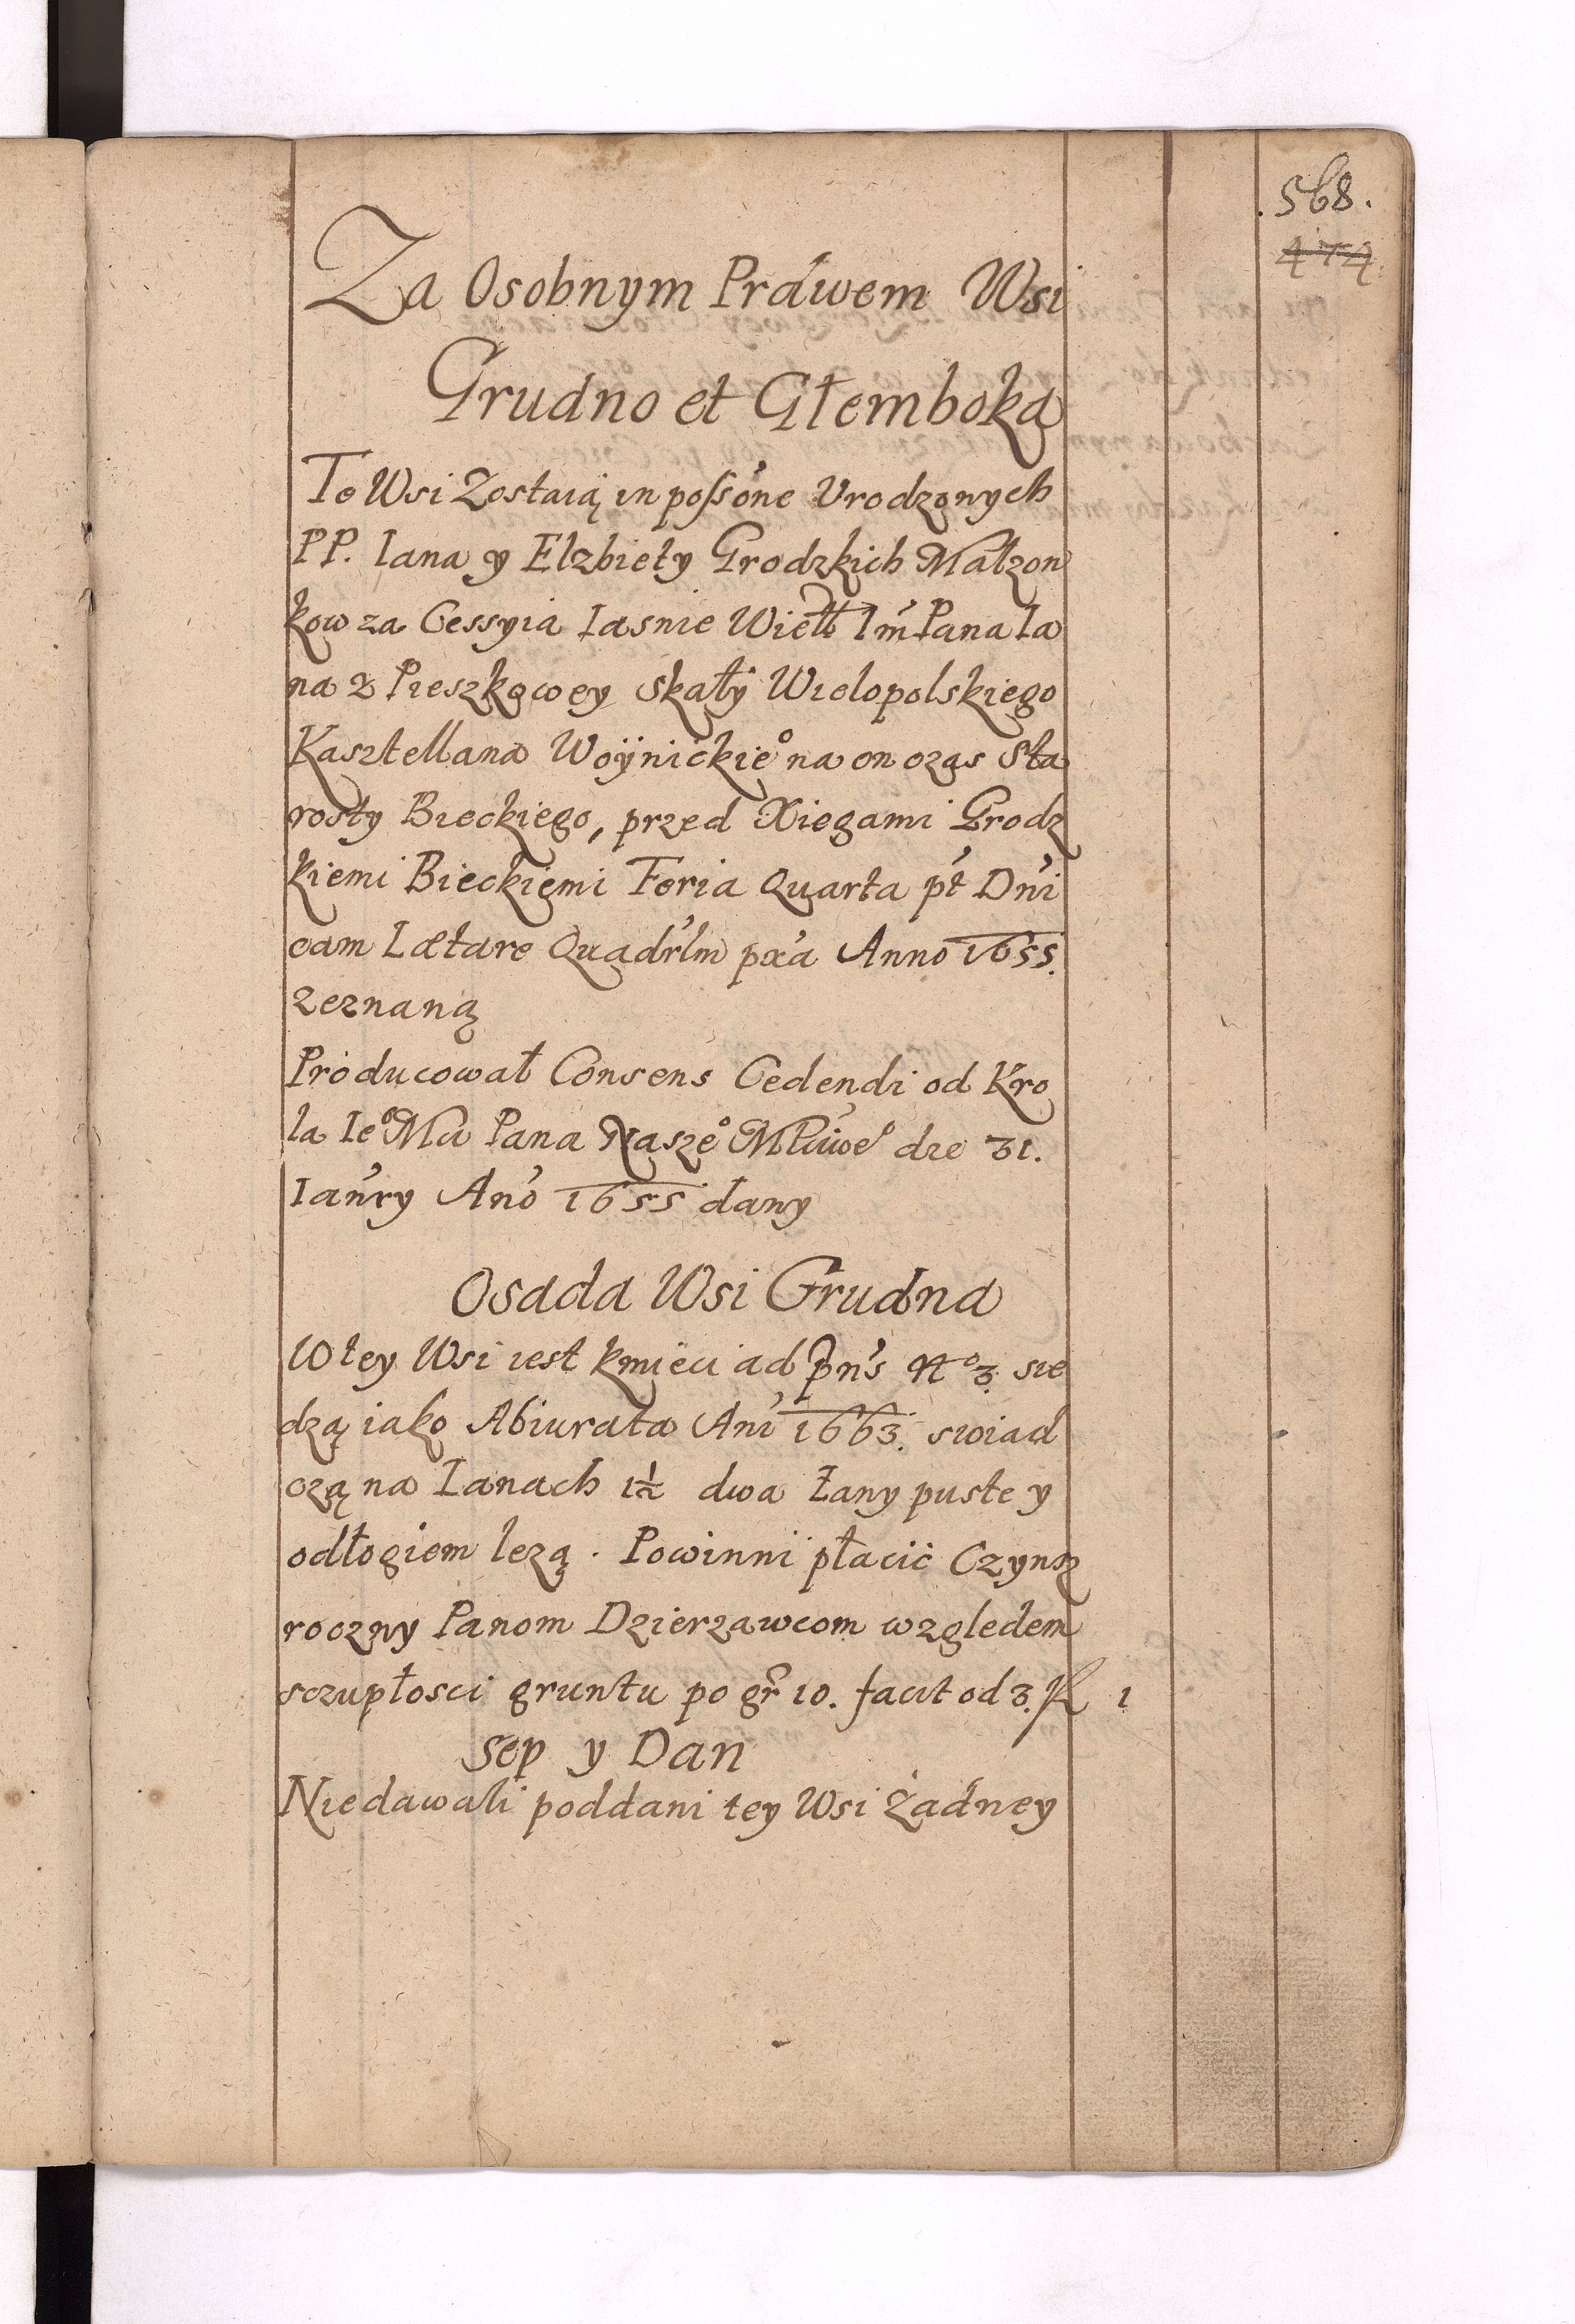 .568.
474
Za Osobnym Práwem Wsi
Grudno et Głemboką
Te Wsi Zostaią in poſſ'one Vrodzonych
PP. Iana y Elzbiety Grodzkich Małzon
kow za Cessyia Iasnie Wiełł Im̃ Pana Ia
na z Pieszkowey Skały Wielopolskiego
Kasztellana Woÿnickieº na on czas Sta
rosty Bieckiego, przed Xiegami Grodz
kiemi Bieckiemi Feria Quarta pt' Dn'i
cam Lætare Quadr'lm px'a Anno 1655.
zeznaną
Producował Consens Cedendi od Kro
la Ieº Pana Naszeº die 31.
Ian'ry An'o 1655 dany
Osada Wsi Grudna
W tey Wsi iest kmieci ad pn's Nº 3. sie
dzą iako Abiurata An'i 1663. swiad
czą na Łanach 1½ dwa Łany puste y
odłogiem lezą. Powinni płacić Czynsz
roczny Panom Dzierzawcom względem
sczupłosci gruntu po gr 10. facit od 3. K 1
Sep y Dan
Niedawali poddani tey Wsi żadney